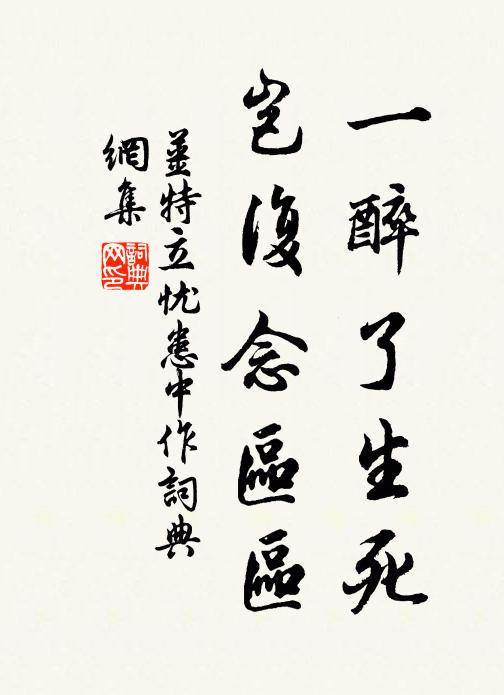 一醉了生死
豈復念區區
薑特立忧患中作詞典
網集
詞典网印